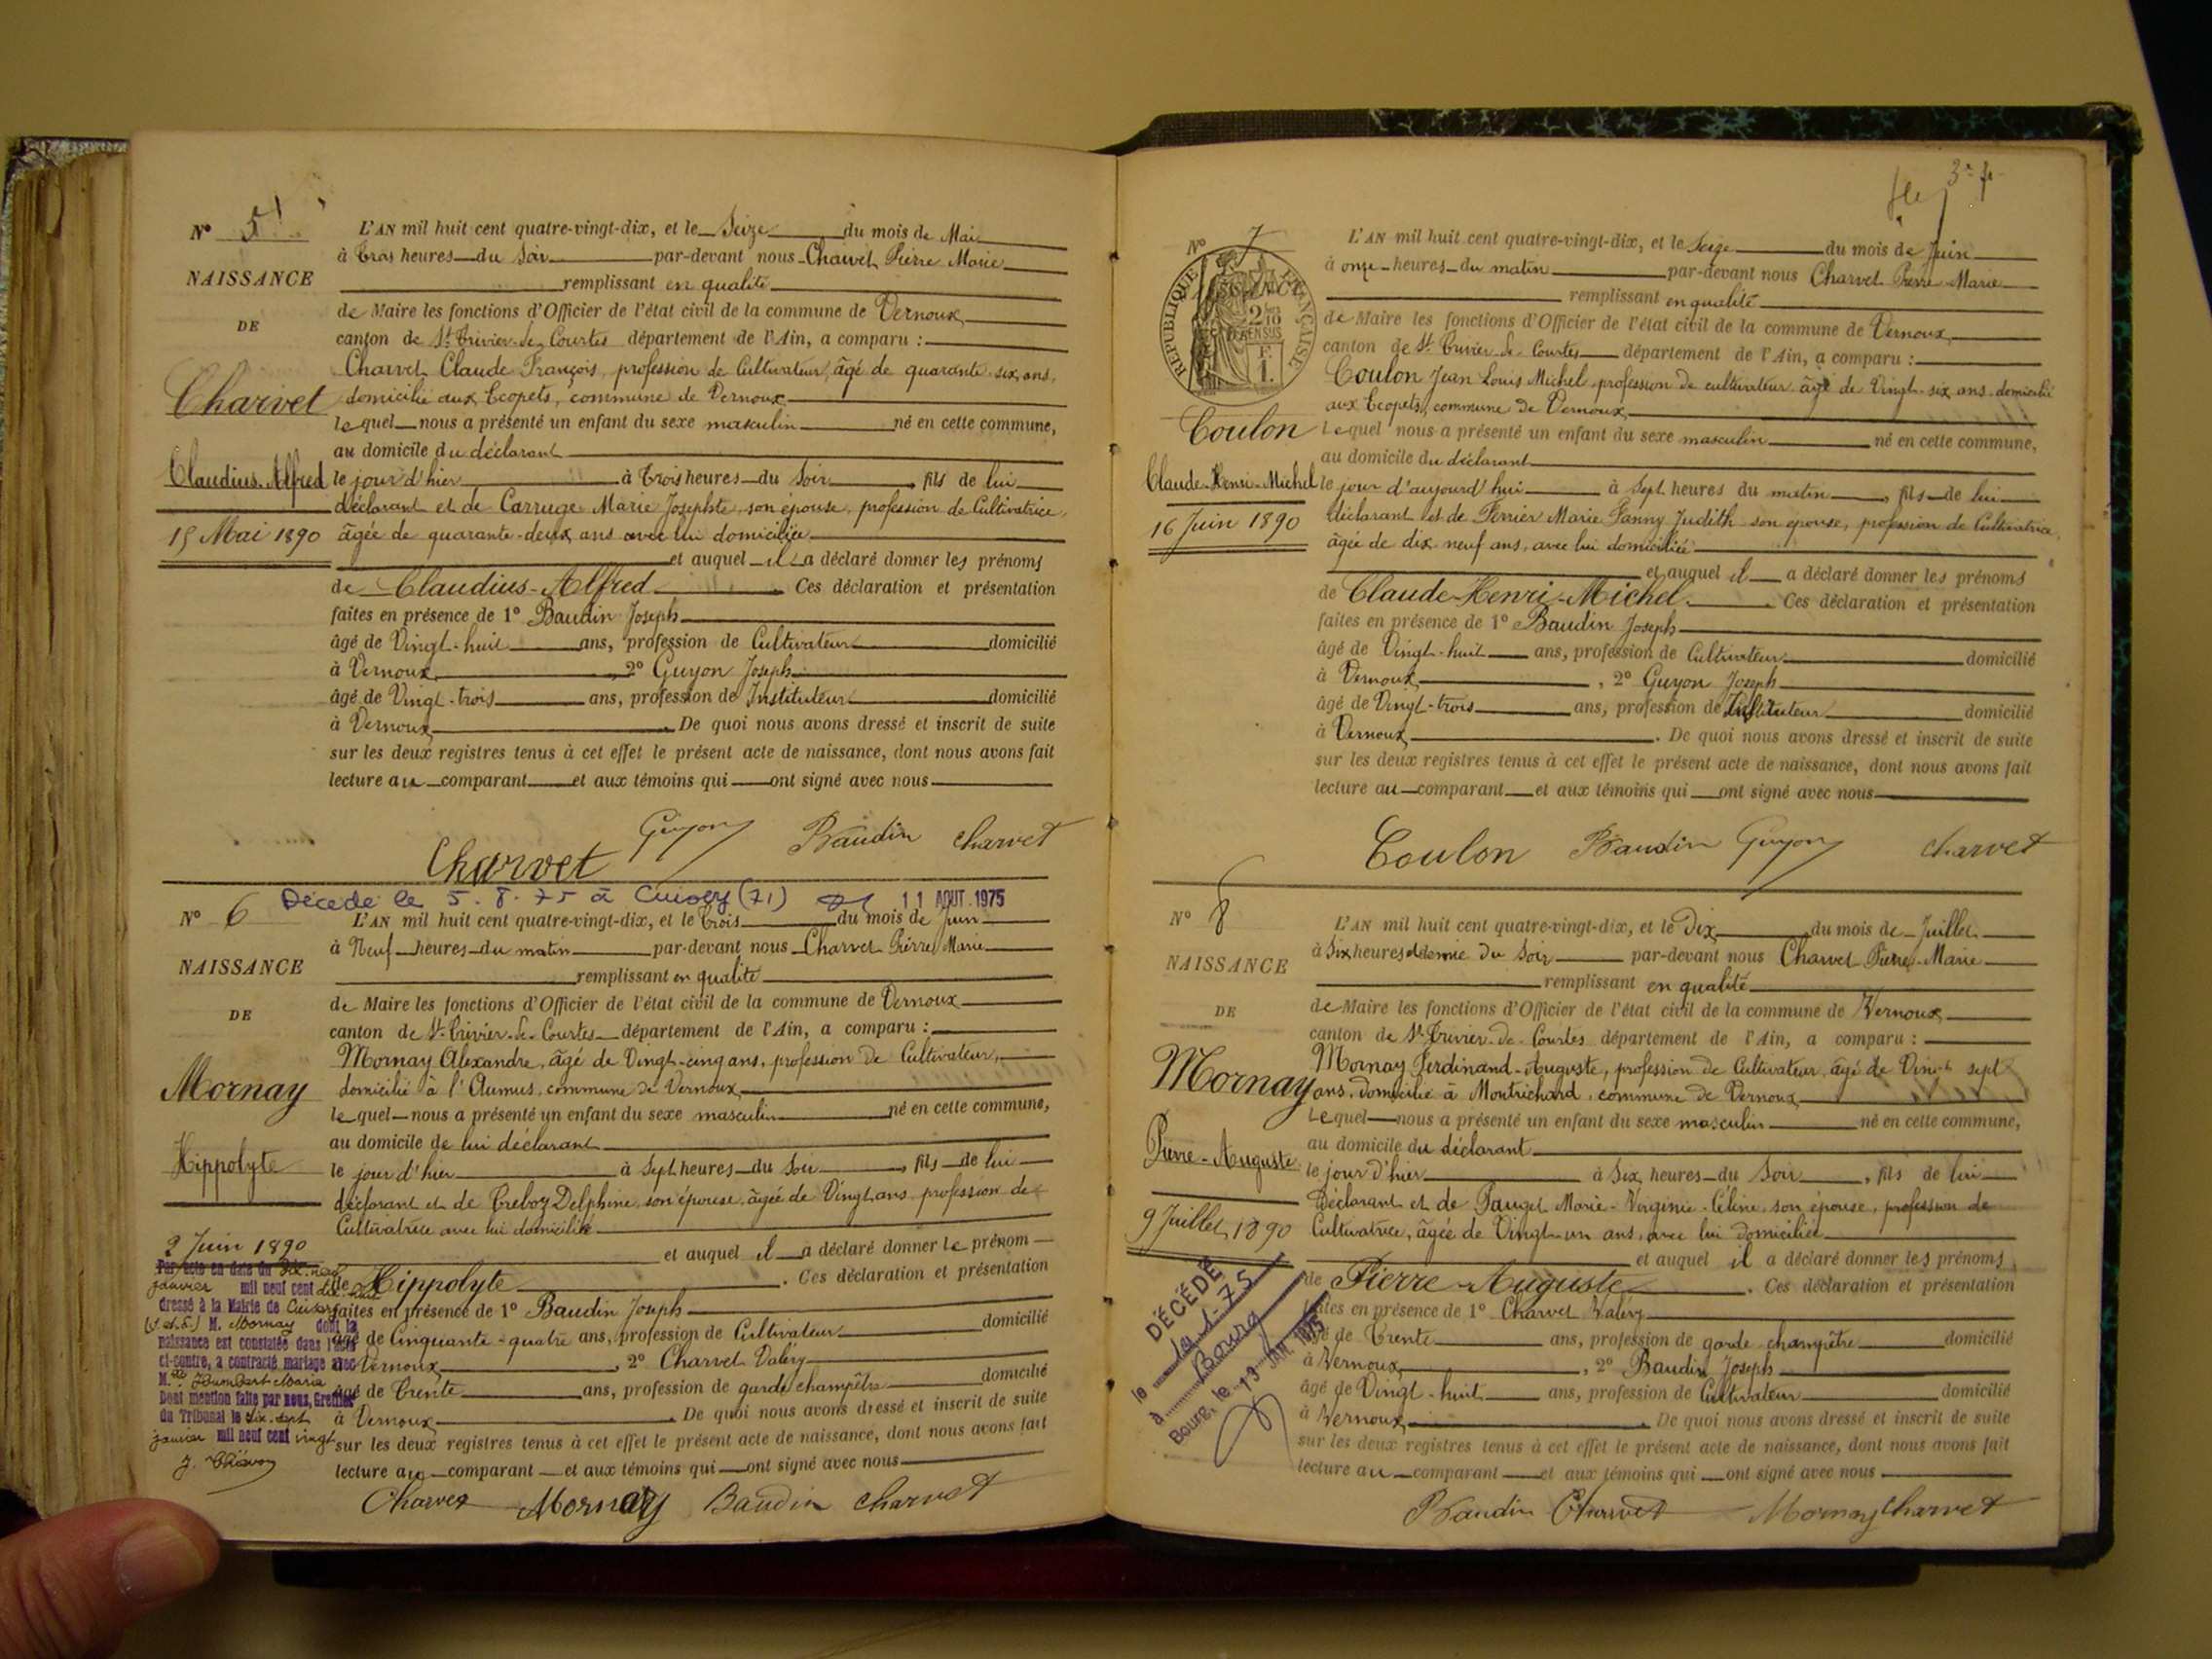 N° 5
L'AN mil huit cent quatre-vingt-dix, et le Seize du mois de Mai
à Trois heures du Soir par-devant nous Charvet Pierre Marie
NAISSANCE
remplissant en qualité
de Maire les fonctions d'Officier de l'état civil de la commune de Vernoux
DE
canton de St Trivier-de-Courtes département de l'Ain, a comparu :
Charvet Claude François, profession de Cultivateur, âgé de quarante-six ans,
Charvet
domicilié aux Ecopets, commune de Vernoux
lequel nous a présenté un enfant du sexe masculin né en cette commune,
au domicile du déclarant
Claudius-Alfred
le jour d'hier à Trois heures du Soir, fils de lui
déclarant et de Carruge Marie Josephte, son épouse, profession de Cultivatrice,
15 Mai 1890
âgée de quarante-deux ans avec lui domiciliée
et auquel il a déclaré donner les prénoms
de Claudius-Alfred. Ces déclaration et présentation
faites en présence de 1° Baudin Joseph
âgé de Vingt-huit ans, profession de Cultivateur domicilié
à Vernoux, 2° Guyon Joseph
âgé de Vingt-trois ans, profession de Instituteur domicilié
à Vernoux. De quoi nous avons dressé et inscrit de suite
sur les deux registres tenus à cet effet le présent acte de naissance, dont nous avons fait
lecture au comparant et aux témoins qui ont signé avec nous
Charvet Guyon Baudin Charvet
Décédé le 5.8.75 à (71) 11 AOUT 1975
N° 6
L'AN mil huit cent quatre-vingt-dix, et le Trois du mois de Juin
à Neuf heures du matin par-devant nous Charvet Pierre Marie
NAISSANCE
remplissant en qualité
DE
de Maire les fonctions d'Officier de l'état civil de la commune de Vernoux
canton de St-Trivier-de-Courtes département de l'Ain, a comparu :
Mornay Alexandre, âgé de Vingt-cinq ans, profession de Cultivateur,
Mornay
domicilié à l'Aumus, commune de Vernoux
lequel nous a présenté un enfant du sexe masculin né en cette commune,
au domicile de lui déclarant
Hippolyte
le jour d'hier à Sept heures du Soir, fils de lui
déclarant et de Treboz Delphine, son épouse, âgée de Vingt ans profession de
Cultivatrice avec lui domiciliée
2 Juin 1890
et auquel il a déclaré donner le prénom
de Hippolyte. Ces déclaration et présentation
faites en présence de 1° Baudin Joseph
âgé de Cinquante-quatre ans, profession de Cultivateur domicilié
à Vernoux, 2° Charvet Valéry
âgé de Trente ans, profession de garde champêtre domicilié
à Vernoux. De quoi nous avons dressé et inscrit de suite
sur les deux registres tenus à cet effet le présent acte de naissance, dont nous avons fait
lecture au comparant et aux témoins qui ont signé avec nous
Par acte en date du dix-neuf
janvier mil neuf cent dix-huit
dressé à la Mairie de
(S.et.L.) M. Mornay dont la
naissance est constatée dans l'acte
ci-contre, a contracté mariage avec
M.elle Humbert Maria
Dont mention faite par nous, Greffier
du Tribunal le dix-sept
janvier mil neuf cent vingt
Charvet Mornay Baudin Charvet
3e f
N° 7
L'AN mil huit cent quatre-vingt-dix, et le Seize du mois de Juin
à onze heures du matin par-devant nous Charvet Pierre Marie
RÉPUBLIQUE FRANÇAISE
remplissant en qualité
de Maire les fonctions d'Officier de l'état civil de la commune de Vernoux
canton de St Trivier-de-Courtes département de l'Ain, a comparu :
Coulon Jean Louis Michel profession de cultivateur âgé de Vingt-six ans domicilié
aux Ecopets, commune de Vernoux
Coulon
Lequel nous a présenté un enfant du sexe masculin né en cette commune,
au domicile du déclarant
Claude-Henri-Michel
le jour d'aujourd'hui à Sept heures du matin, fils de lui
déclarant et de Ferrier Marie Fanny Judith son épouse, profession de Cultivatrice,
16 Juin 1890
âgée de dix-neuf ans, avec lui domiciliée
et auquel il a déclaré donner les prénoms
de Claude-Henri-Michel. Ces déclaration et présentation
faites en présence de 1° Baudin Joseph
âgé de Vingt-huit ans, profession de Cultivateur domicilié
à Vernoux, 2° Guyon Joseph
âgé de Vingt-trois ans, profession de Instituteur domicilié
à Vernoux. De quoi nous avons dressé et inscrit de suite
sur les deux registres tenus à cet effet le présent acte de naissance, dont nous avons fait
lecture au comparant et aux témoins qui ont signé avec nous
Coulon Baudin Guyon Charvet
N° 8
L'AN mil huit cent quatre-vingt-dix, et le Dix du mois de Juillet
à Six heures et demie du Soir par-devant nous Charvet Pierre-Marie
NAISSANCE
remplissant en qualité
DE
de Maire les fonctions d'Officier de l'état civil de la commune de Vernoux
canton de St-Trivier-de-Courtes département de l'Ain, a comparu :
Mornay Ferdinand-Auguste, profession de Cultivateur, âgé de Vingt sept
Mornay
ans, domicilié à Montrichard, commune de Vernoux
Lequel nous a présenté un enfant du sexe masculin né en cette commune,
au domicile du déclarant
Pierre-Auguste
le jour d'hier à Six heures du Soir, fils de lui
Déclarant et de Pauget Marie-Virginie-Céline, son épouse, profession de
9 Juillet 1890
Cultivatrice, âgée de Vingt-un ans, avec lui domiciliée
et auquel il a déclaré donner les prénoms
de Pierre-Auguste. Ces déclaration et présentation
faites en présence de 1° Charvet Valéry
âgé de Trente ans, profession de garde champêtre domicilié
à Vernoux, 2° Baudin Joseph
âgé de Vingt-huit ans, profession de Cultivateur domicilié
à Vernoux. De quoi nous avons dressé et inscrit de suite
sur les deux registres tenus à cet effet le présent acte de naissance, dont nous avons fait
lecture au comparant et aux témoins qui ont signé avec nous
DÉCÉDÉ
le 1-75
à Bourg
Bourg, le 13 JAN. 1975
Baudin Charvet Mornay Charvet